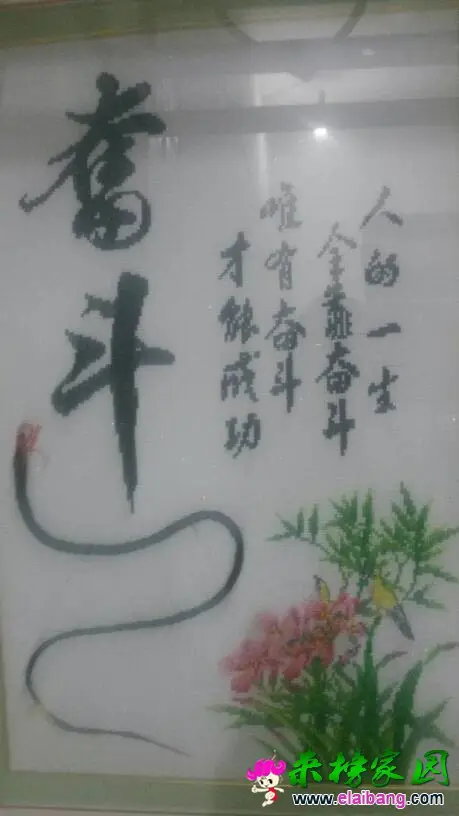 奋斗
人的一生
全靠奋斗
唯有奋斗
才能成功
来榜家园
www.elaibang.com